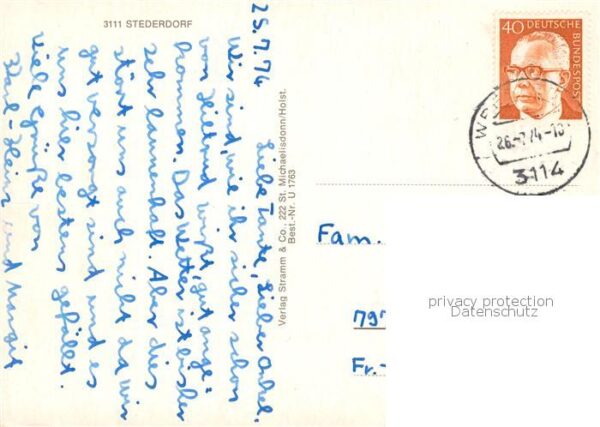 3111 STEDERDORF
25.7.74
Liebe Tante, Lieber Onkel.
Wir sind, wie ihr sicher schon
von Heilrud wißt, gut ange=
kommen. Das Wetter ist bisher
sehr launenhaft. Aber dies
stört uns auch nicht da wir
gut versorgt sind und es
uns hier bestens gefällt.
Viele Grüße von
Karl-Heinz und Margit
Verlag Stramm & Co., 222 St. Michaelisdonn/Holst.
Best.-Nr. U 1763
40 DEUTSCHE
BUNDESPOST
26.-7.74-18
3114
Fam.
797
Fr.-
privacy protection
Datenschutz